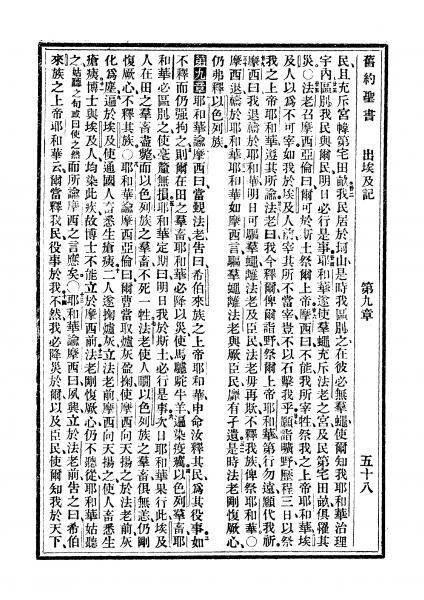 舊約聖書 出埃及記 第九章 五十八
民且充斥宮幃第宅田畝我民居於坷山是時我區別之在彼必無羣蠅使爾知我耶和華治理
宇內區別我民與爾民明日必行是事耶和華遂使羣蠅充斥法老之宮及民第宅田畝俱罹其
災○法老召摩西亞倫曰爾可於斯土祭爾上帝摩西曰不能我所宰牲祭我之上帝耶和華埃
及人以爲不可宰如我於埃及人前宰其所不當宰豈不以石擊我乎願詣曠野歷程三日以祭
我之上帝耶和華遵其所諭法老曰我今釋爾俾爾詣野祭爾上帝耶和華第行勿遠願代我祈
摩西曰我退禱於耶和華明日可驅羣蠅離法老及臣民法老毋再欺不釋我族俾祭耶和華○
摩西退禱於耶和華耶和華如摩西言驅羣蠅離法老與厥臣民靡有孑遺是時法老剛愎厥心
仍弗釋以色列族
第九章耶和華諭摩西曰當覲法老告曰希伯來族之上帝耶和華申命汝釋其民爲其役事如
不釋而仍強拘之則爾在田之羣畜耶和華必降以災使馬驢駝牛羊遘染疫癘以色列羣畜耶
和華必區別之使毫釐無損耶和華定期曰明日我於斯土必行是事次日耶和華果行此埃及
人在田之羣畜盡斃而以色列族之羣畜不死一牲法老使人瞷以色列族之羣畜俱無恙仍剛
愎厥心不釋其族○耶和華諭摩西亞倫曰爾曹當取爐灰盈掬使摩西向天揚之於法老前灰
化爲塵遍於埃及使通國人畜悉生瘡痍二人遂掬爐灰立法老前摩西向天揚之使人畜悉生
瘡痍博士與埃及人均染此疾故博士不能立於摩西前法老剛愎厥心仍不聽從耶和華姑聽
之姑聽之句或曰使之然而所諭摩西之言應矣○耶和華諭摩西曰夙興立於法老前告之曰希伯
來族之上帝耶和華云爾當釋我民役事於我不然我必降災於爾以及臣民使爾知我於天下